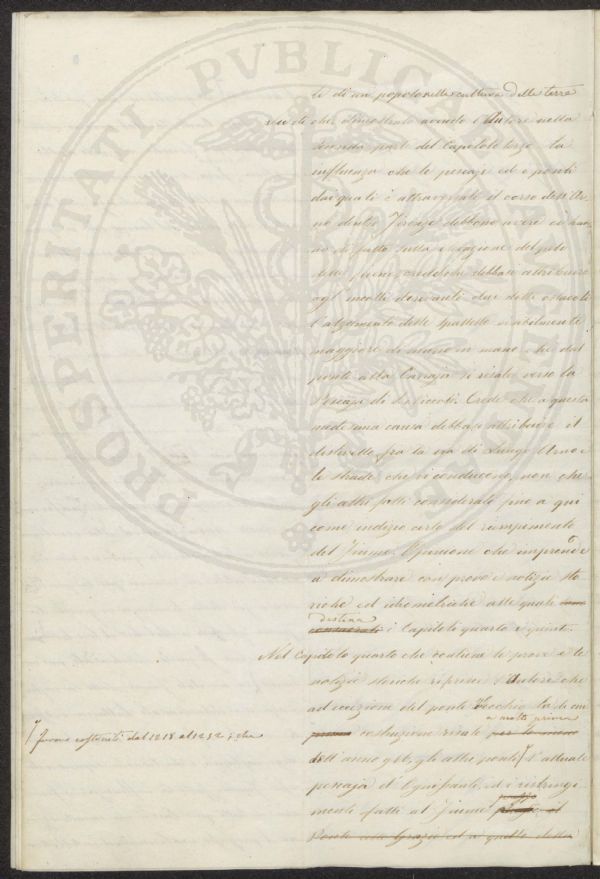 PROSPERITATI PVBLICAE
le di un popolo nelle cultura delle terre
di che dimostrato avendo l'Autore nella
seconda parte del Capitolo terzo la
influenza che le pescaje ed i ponti
dai quali è attraversato il corso dell'Ar
no dentro Firenze debbono avere ed han
no di fatto sulla elevazione del
del fiume, crede che debbasi attribuire
agl' incolti derivanti due delle
l'alzamento delle spallette
maggiore di mano in mano che dal
ponte alla Carraja si risale verso la
Pescaja di S. Niccolò. Crede che a questa
medesima causa debbasi attribuire il
dislivello fra la via di Lungo Arno e
le strade che vi conducono, non che
gli altri fatti considerati fino a qui
come indizio certo del riempimento
del fiume. Opinione che imprende
a dimostrare con prove e notizie sto
riche ed idrometriche alle quali sono
destina
consacrati i Capitoli quarto e quinto.
Nel Capitolo quarto che contiene le prove e le
notizie storiche riprende l'Autore che
ad eccezione del ponte Vecchio la di cui
a molto prima
costruzione risale per lo meno
dell'anno gli altri ponti, l'attuale
Furono costruiti dal 1218 al 1252
pescaja d'Ognissanti, ed i restringi
menti fatti al fiume
Ponte alle Grazie ed a quello della